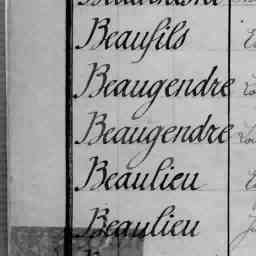 Beaufils
Beaugendre
Beaugendre
Beaulieu
Beaulieu